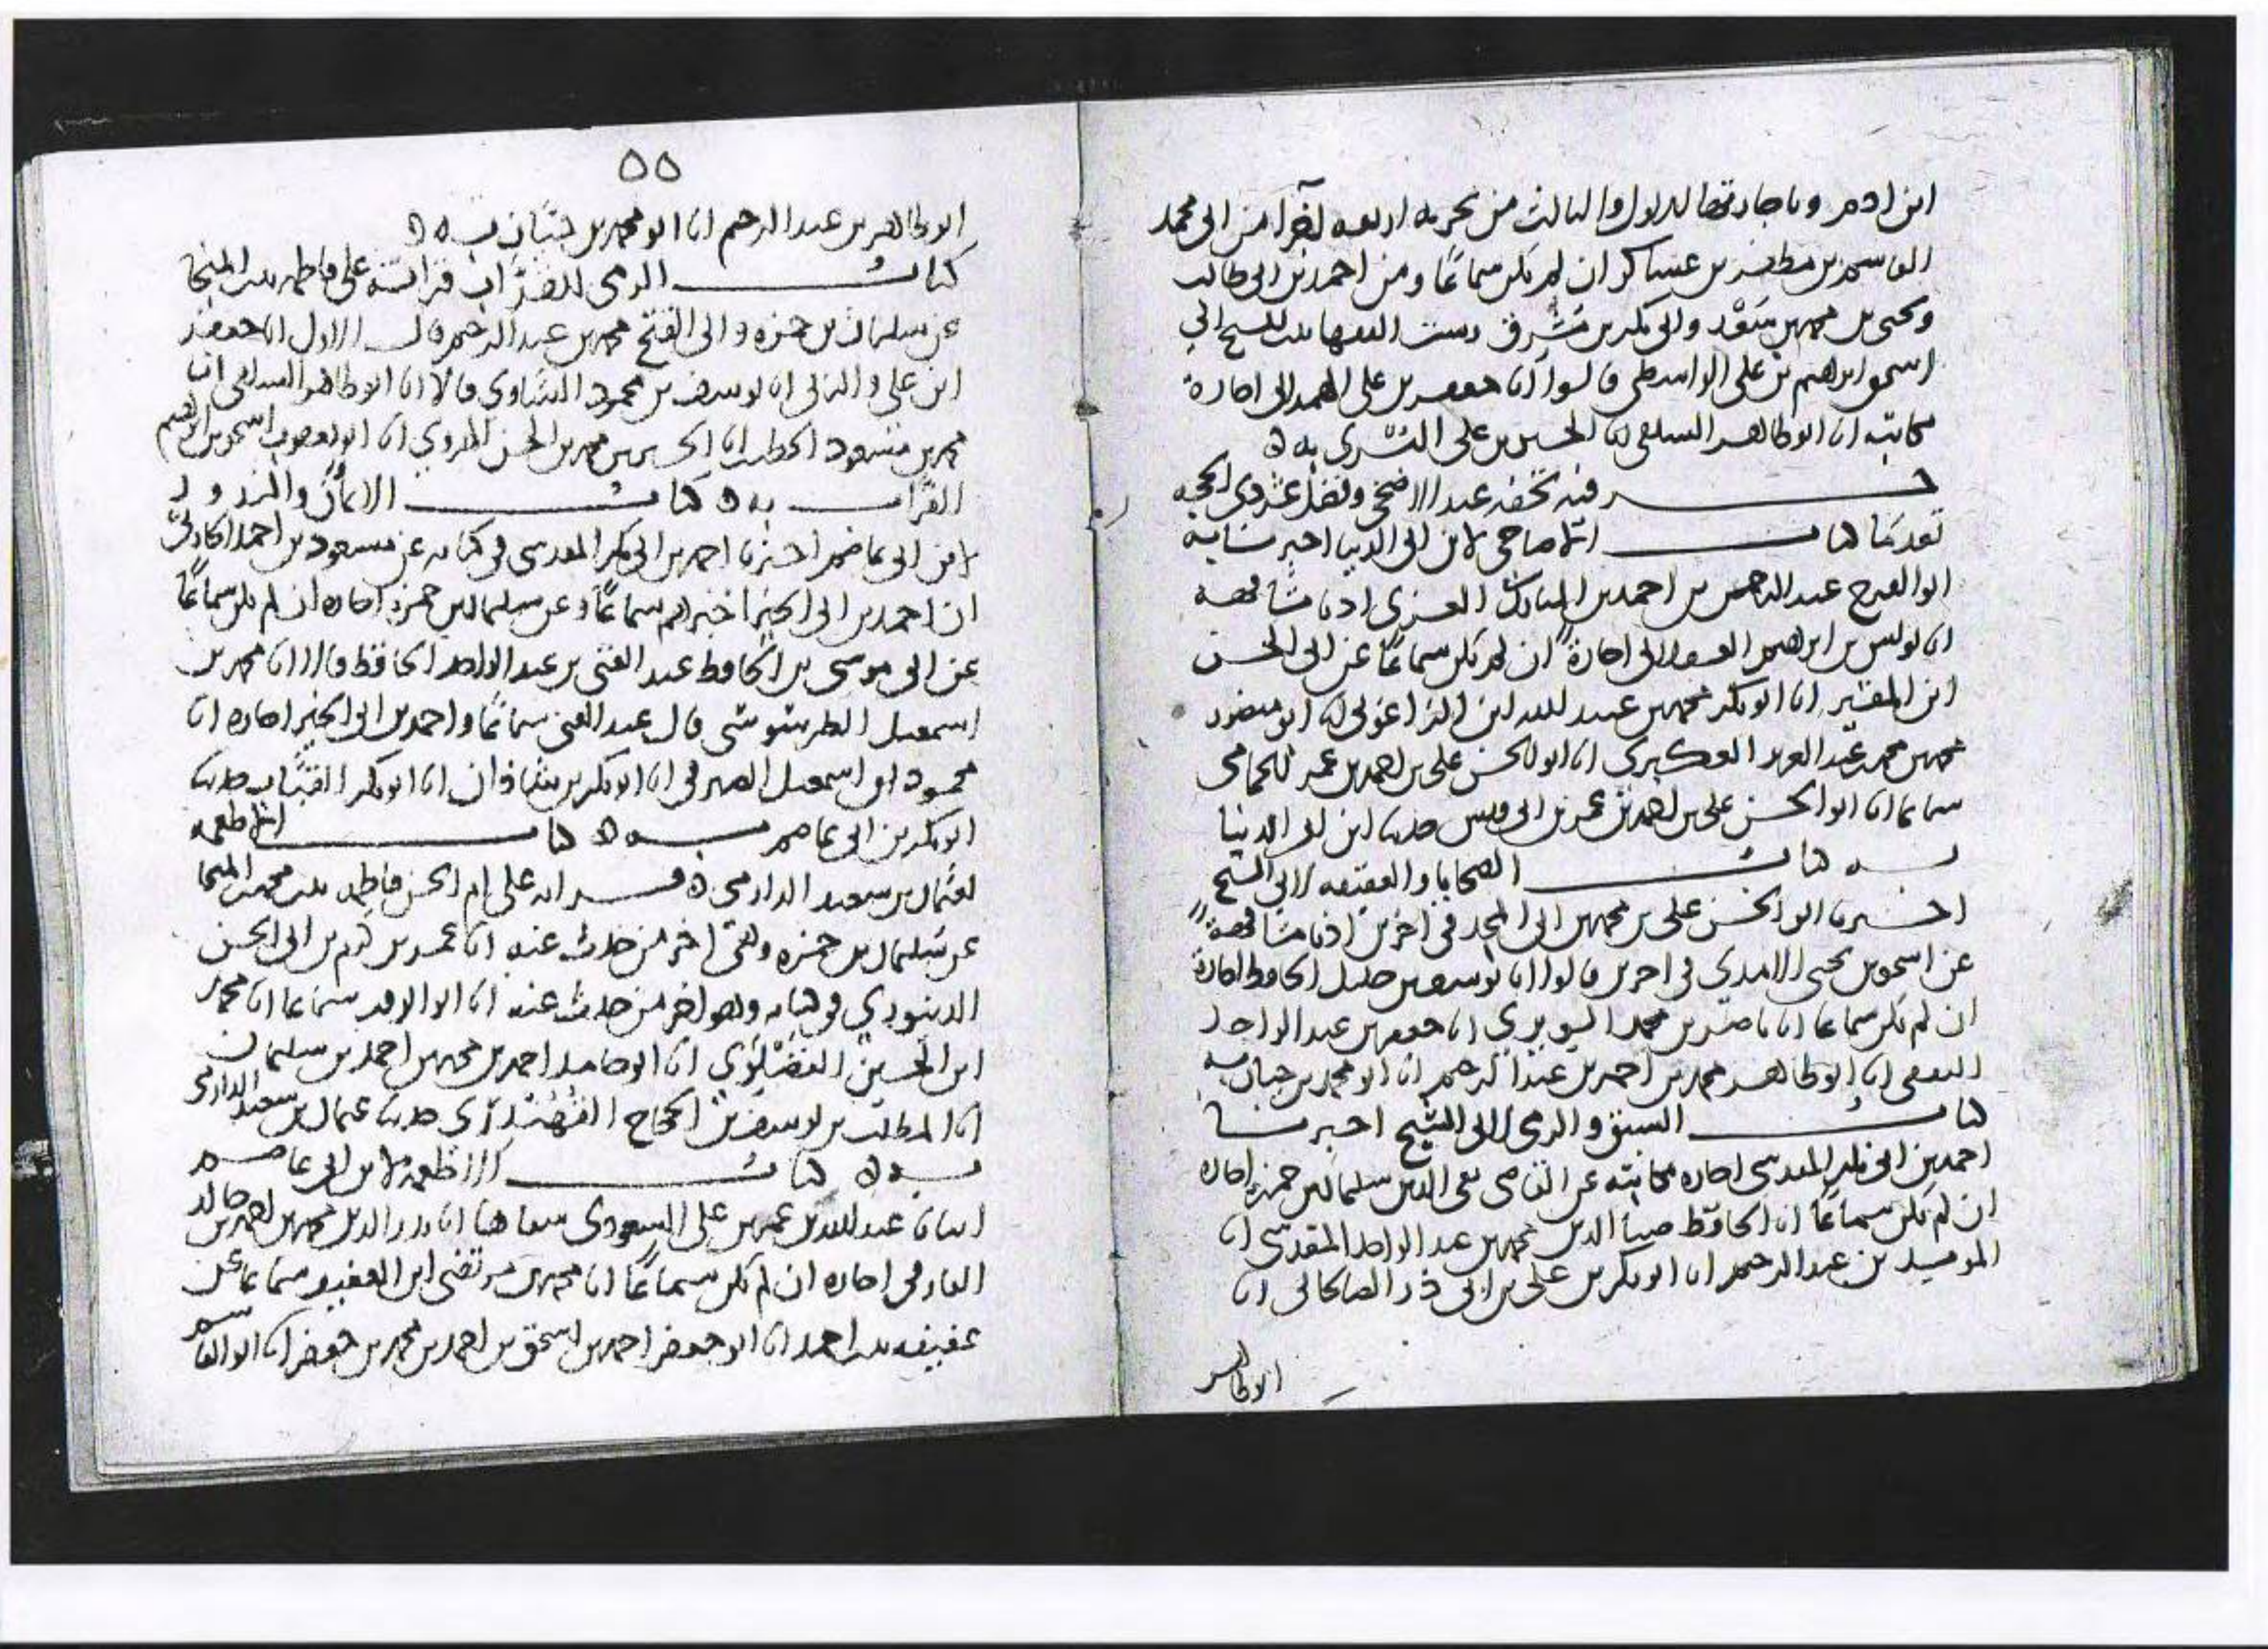 ابن ادم وباجازتها للاول والثالث من تخريجه اربعه اخر من ابي محمد
القاسم بن مظفر بن عساكر ان لم يكن سماعًا ومن احمد بن ابي طالب
ويحيى بن محمد بن سَعْد وابي بكر بن مُشرق وست الفقها بنت الشيخ ابي
اسحق ابرهيم بن علي الواسطي قالوا انا جعفر بن علي الهمداني اجازة
مكاتبة انا ابو طاهر السلفي انا الحسين بن علي البُسْري به ه
جزء فيه تحفه عيد الاضحى وفضل عشر ذي الحجه
تقدما كتاب الاضاحي لابن ابي الدنيا اخبرنا به
ابو الفرج عبد الرحمن بن احمد بن المبارك الغزي اذنا مشافهه
انا يونس بن ابراهيم العسقلاني اجازةً ان لم يكن سماعًا عن ابي الحسن
ابن المقير انا ابو بكر محمد بن عبيد الله ابن الزاغوني انا ابو منصور
محمد بن محمد عبد العزيز العكبري انا ابو الحسن علي بن احمد بن عمر الحمامي
سماعا انا ابو الحسن علي بن احمد بن عمر بن ابي قيس حدثنا ابن ابي الدنيا
به كتاب الضحايا والعقيقه لابي الشيخ
اخبرنا ابو الحسن علي بن محمد بن ابي المجد في اخرين اذنا مشافهةً
عن اسحق بن يحيى الامدي في اخرين قالوا انا يوسف بن خليل الحافظ اجازة
ان لم يكن سماعا انا ناصر بن محمد الويرج انا جعفر بن عبد الواحد
الثقفي انا ابو طاهر محمد بن احمد بن عبد الرحيم انا ابو محمد بن حيان به
كتاب السبق والرمي لابي الشيخ اخبرنا
احمد بن ابي بكر المقدسي اجازه مكاتبة عن القاضي تقي الدين سليمان بن حمزة اجازه
ان لم يكن سماعًا انا الحافظ ضيا الدين محمد بن عبد الواحد المقدسي انا
المويد بن عبد الرحيم انا ابو بكر بن علي بن ابي ذر الصالحاني انا
ابو طاهر
٥٥
ابو طاهر بن عبد الرحيم انا ابو محمد بن حَيَّان به ه
كتاب الرمي للقرَّاب قراته على فاطمه بنت المنجا
عن سليمان بن حمزه وابي الفتح محمد بن عبد الرحيم قال الاول انا جعفر
ابن علي والثاني انا يوسف بن محمود الساوي قالا انا ابو طاهر السلفي انا
محمد بن مسعود الخطيب انا محمد بن الحسن المروي انا ابو يعقوب اسحق بن ابرهيم
القراب به ه كتاب الايمان والنذور
لابن ابي عاصم اخبرنا احمد بن ابي بكر المقدسي في كتابه عن مسعود بن احمد الحارثي
ان احمد بن ابي الخير اخبرهم سماعًا وعن سليمان بن حمزه اجازه ان لم يكن سماعًا
عن ابي موسى بن الحافظ عبد الغني بن عبد الواحد الحافظ قالا انا محمد بن
اسمعيل الطرسوسي قال عبد الغني سماعًا واحمد بن ابي الخير اجازه انا
محمود ابن اسمعيل الصيرفي انا ابو بكر بن شاذان انا ابو بكر القَبَّاب حدثنا
ابو بكر بن ابي عاصم به ه كتاب الاطعمه
لعثمان بن سعيد الدارمي ه قراته على ام الحسن فاطمه بنت محمد بن المنجا
عن سليمان بن حمزه وهي اخر من حدث عنه انا عمر بن كرم بن ابي الحسن
الدينوري في كتابه وهو اخر من حدث عنه انا ابو الوقت سماعا انا محمد
ابن الحسين الفُضَيْلَوي انا ابو حامد احمد بن محمد بن احمد بن سليمان
انا المطلب بن يوسف بن الحجاج القُهُنْدُزي حدثنا عثمان بن سعيد الدارمي
به ه كتاب الاطعمة لابن ابي عاصم
انبانا عبد الله بن عمر بن علي السعودي شفاها انا بدر الدين محمد بن احمد بن خالد
الفارقي اجازه ان لم يكن سماعًا انا محمد بن مرتضى ابن العفيف سماعا عن
عفيفه بنت احمد انا ابو جعفر احمد بن اسحق بن احمد بن محمد بن جعفر انا ابو القاسم